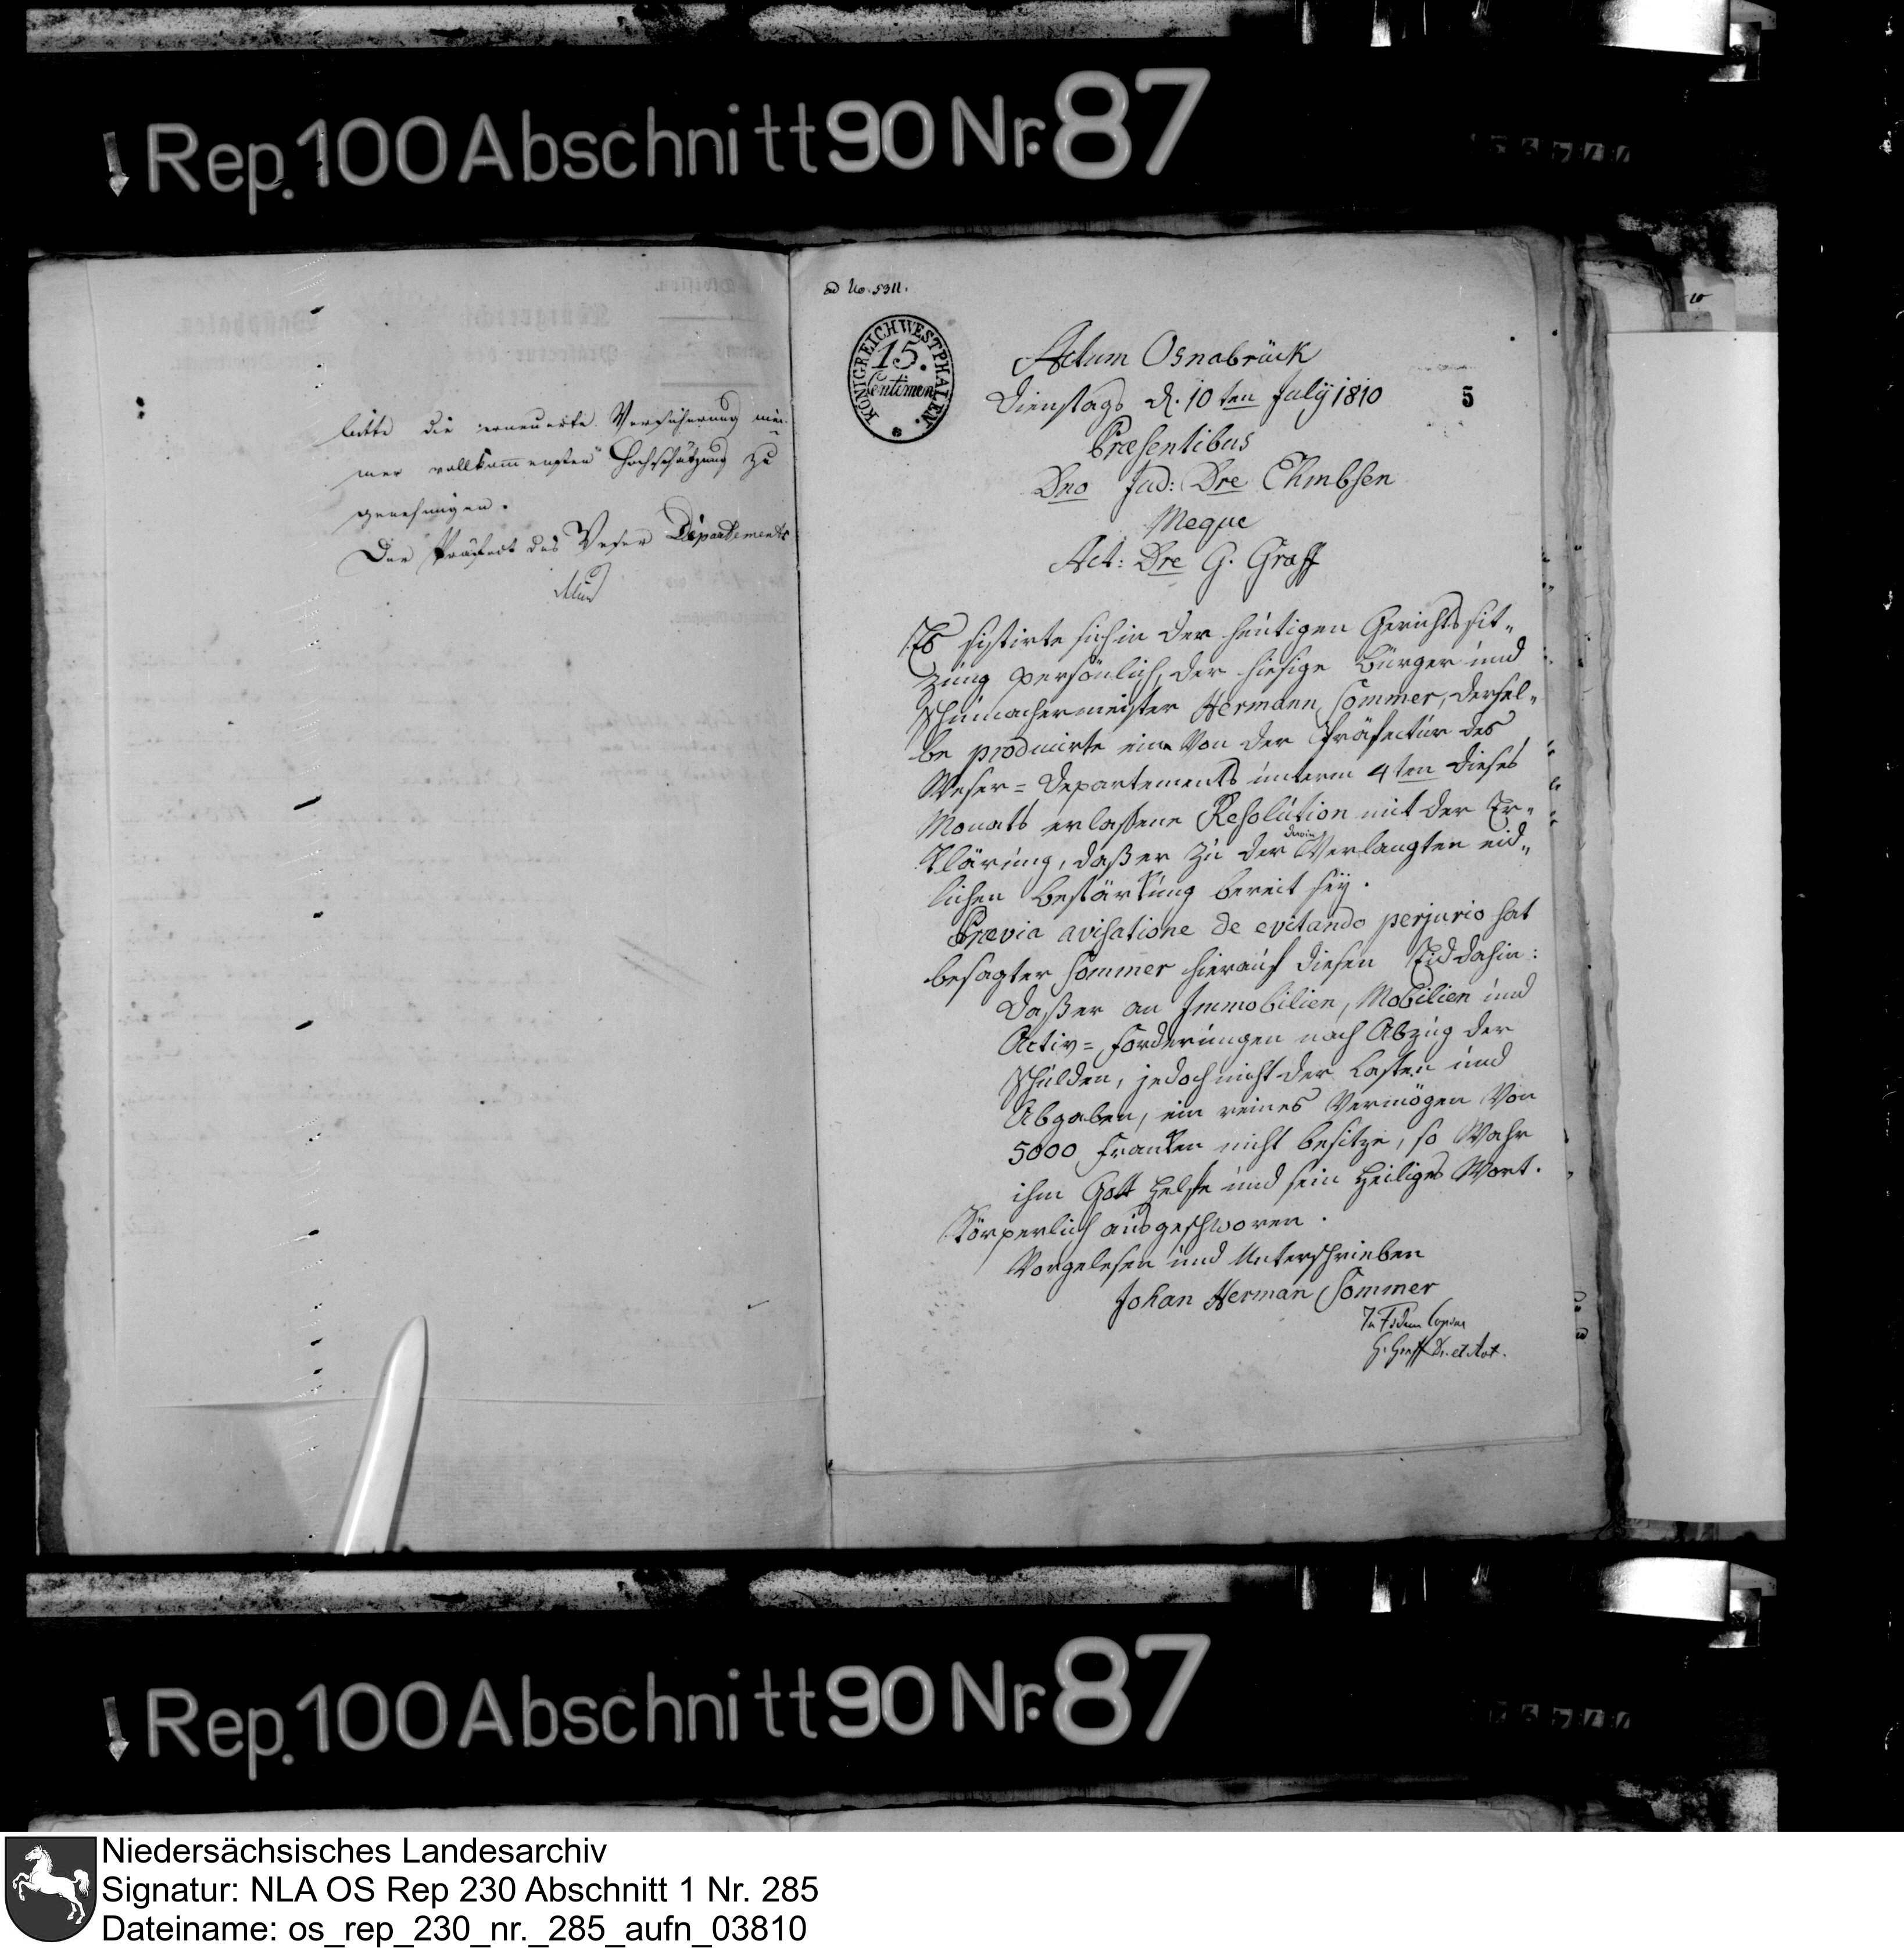 Rep. 100 Abschnitt 90 Nr. 87
bitte die erneuerte Versicherung mei-
ner vollkommensten Hochschätzung zu
genehmigen.
Der Präfect des Weser Departements
ad No. 5311.
KÖNIGREICH WESTPHALEN.
15.
Centimen
5
10
Actum Osnabrück
Dienstags d. 10ten July 1810
Præsentibus
Dno Jud: Dre Ehmbsen
Meque
Act: Dre G. Graff
Es sistirte sich in der heutigen Gerichtssit-
zung persönlich, der hiesige Bürger und
Schumachermeister Hermann Sommer, dersel-
be producirte eine von der Präfectur des
Weser-Departements unterm 4ten dieses
Monats erlassene Resolution mit der Er-
klärung, daß er zu der darin verlangten eid-
lichen Bestärkung bereit sey.
Prævia avisatione de evitando perjurio hat
besagter Sommer hierauf diesen Eid dahin:
daß er an Immobilien, Mobilien und
Activ-Forderungen nach Abzug der
Schulden, jedoch nicht der Lasten und
Abgaben, ein reines Vermögen von
5000 Franken nicht besitze, so wahr
ihm Gott helfe und sein heiliges Wort.
Körperlich ausgeschworen.
Vorgelesen und Unterschrieben
Johan Herman Sommer
In Fidem Copiae
G. Graff Dr. et Act.
Rep. 100 Abschnitt 90 Nr. 87
Niedersächsisches Landesarchiv
Signatur: NLA OS Rep 230 Abschnitt 1 Nr. 285
Dateiname: os_rep_230_nr._285_aufn_03810